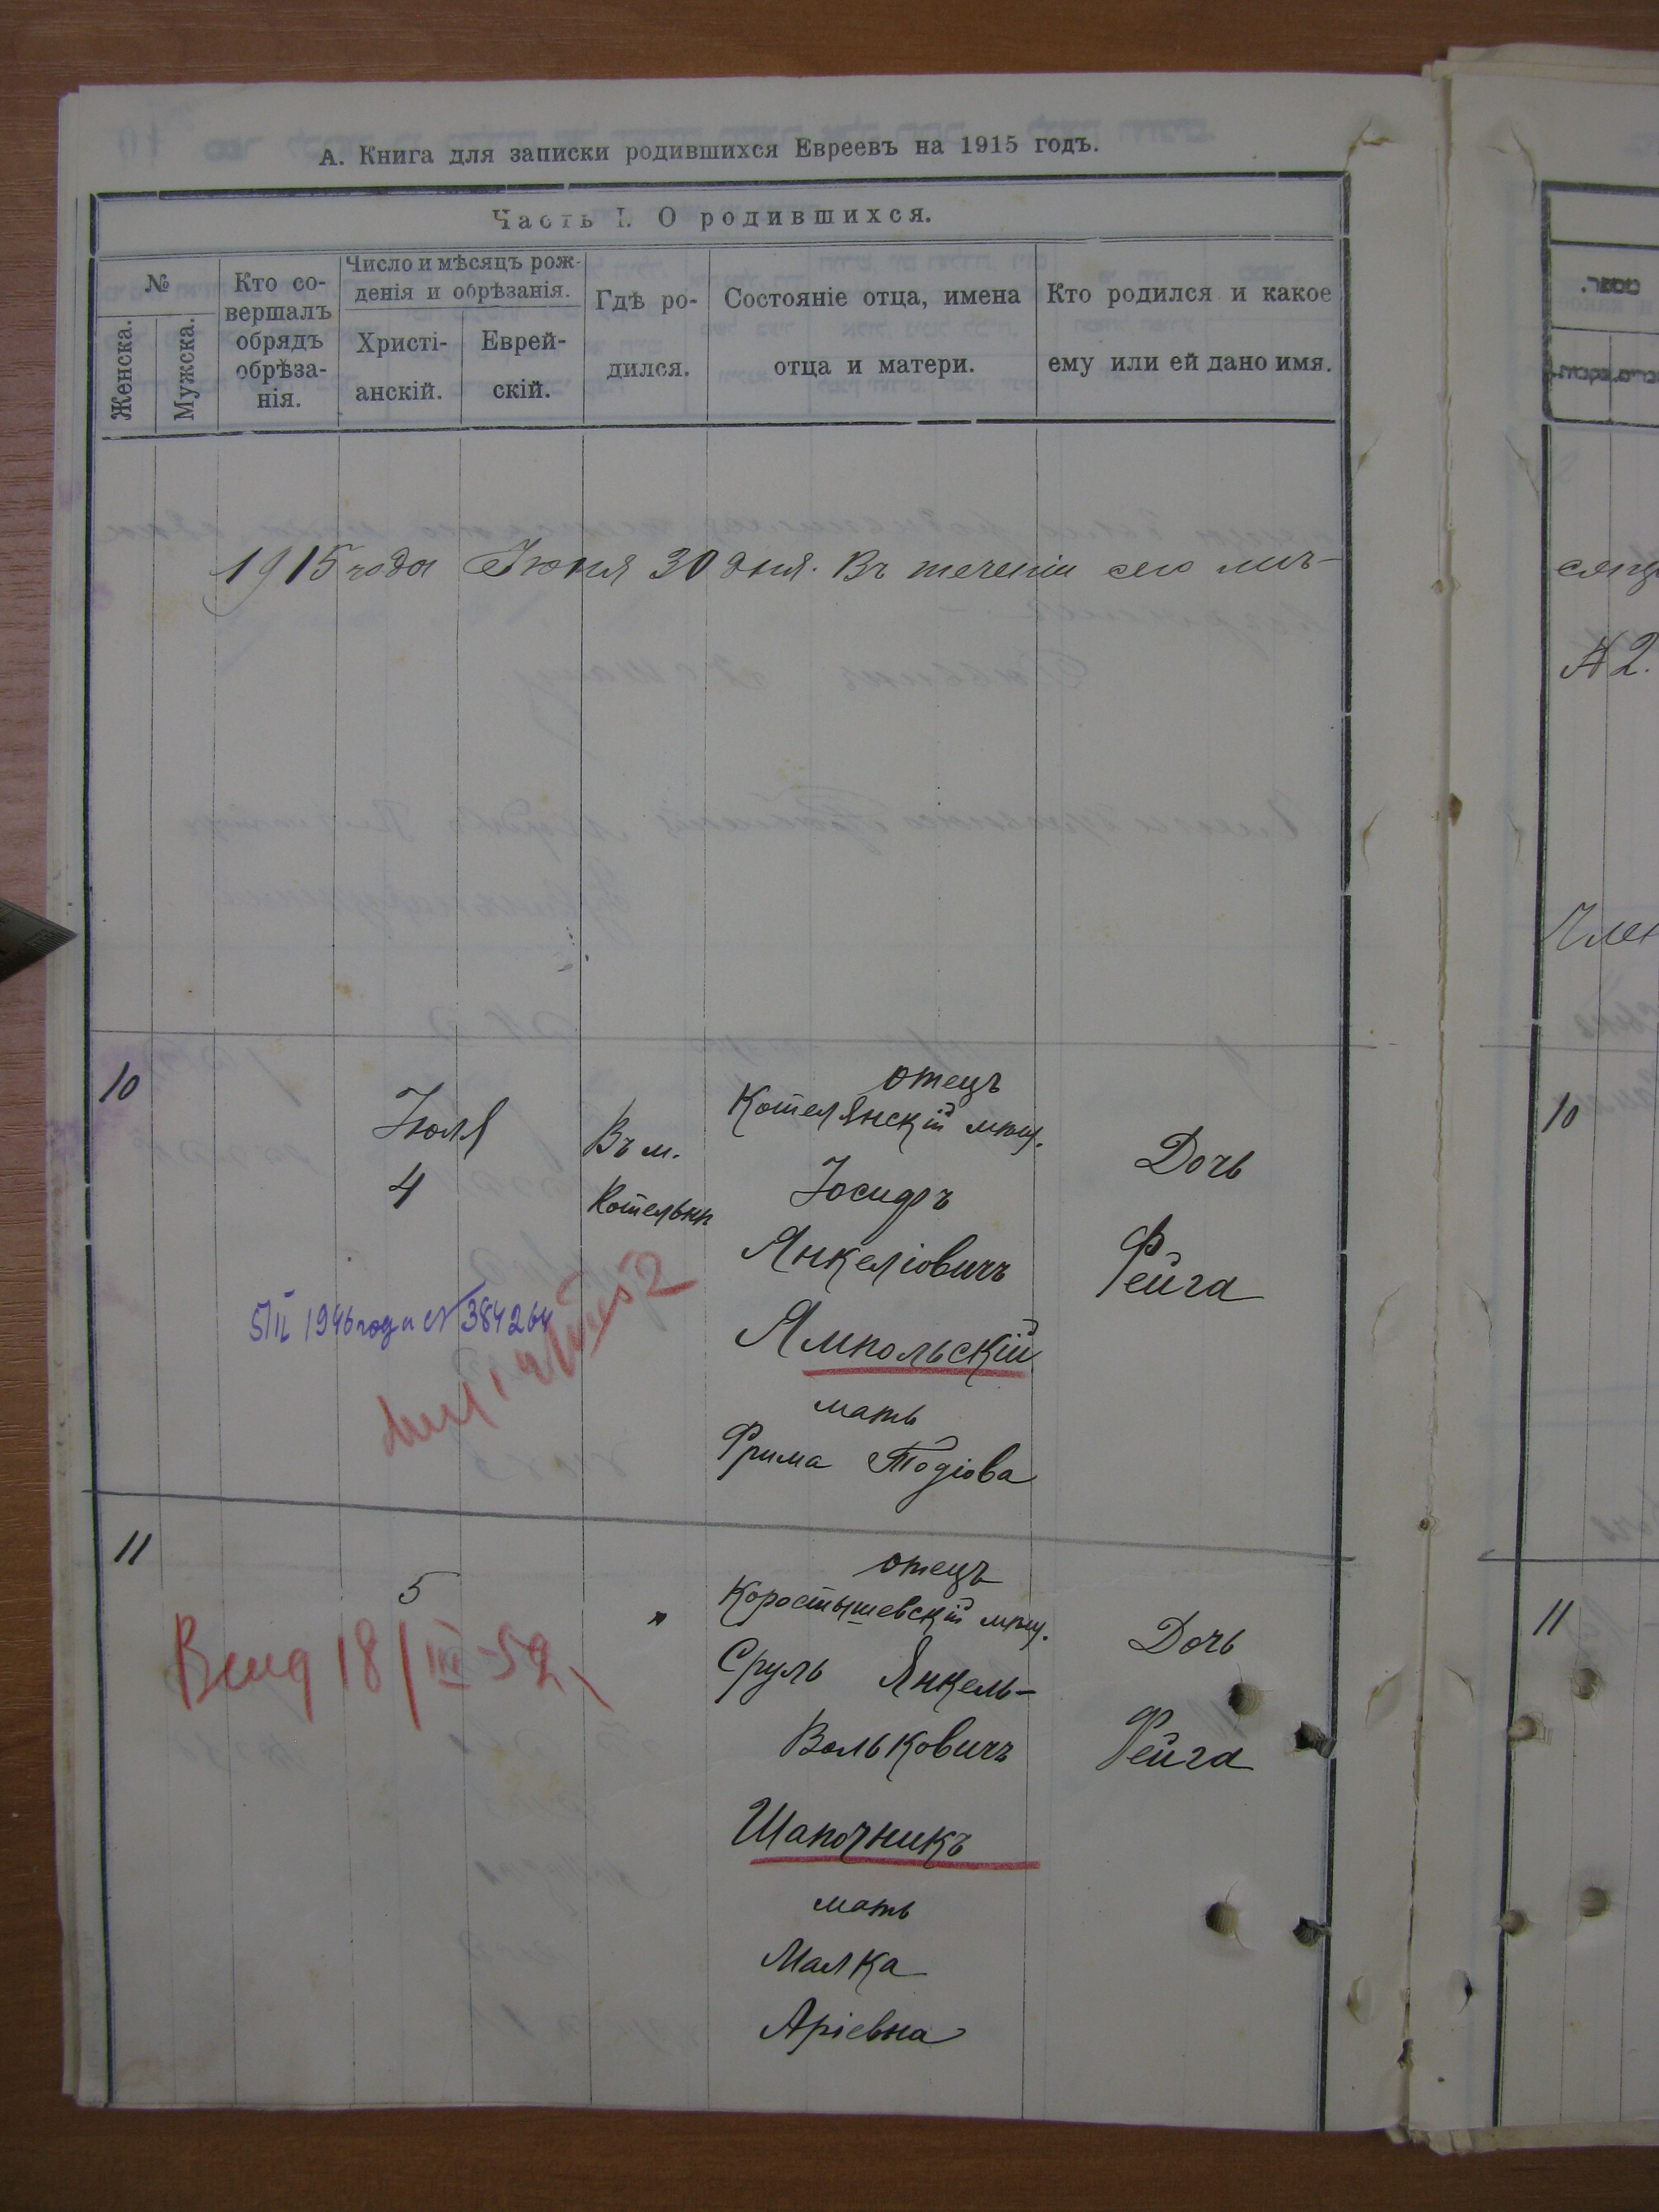 А. Книга для записки родившихся Евреевъ на 1915 годъ.
Часть I. О родившихся.
№
Женска.
Мужска.
Кто со-
вершалъ
обрядъ
обрѣза-
нія.
Число и мѣсяцъ рож-
денія и обрѣзанія.
Христі-
анскій.
Еврей-
скій.
Гдѣ ро-
дился.
Состояніе отца, имена
отца и матери.
Кто родился и какое
ему или ей дано имя.
1915 года Іюня 30 дня. Въ теченіи сего мѣ-
10
Іюля
4
Въ м.
Котельни
отецъ
Котелянскій мѣщ.
Іосифъ
Янкеліовичъ
Ямпольскій
мать
Фрима Тодіова
Дочь
Фейга
5/II 1946 года № 384264
11
5
"
отецъ
Коростышевскій мѣщ.
Сруль Янкель-
Вольковичъ
Шапочникъ
мать
Малка
Аріевна
Дочь
Фейга
18/III-52
сяца
№ 2.
Член
10
11